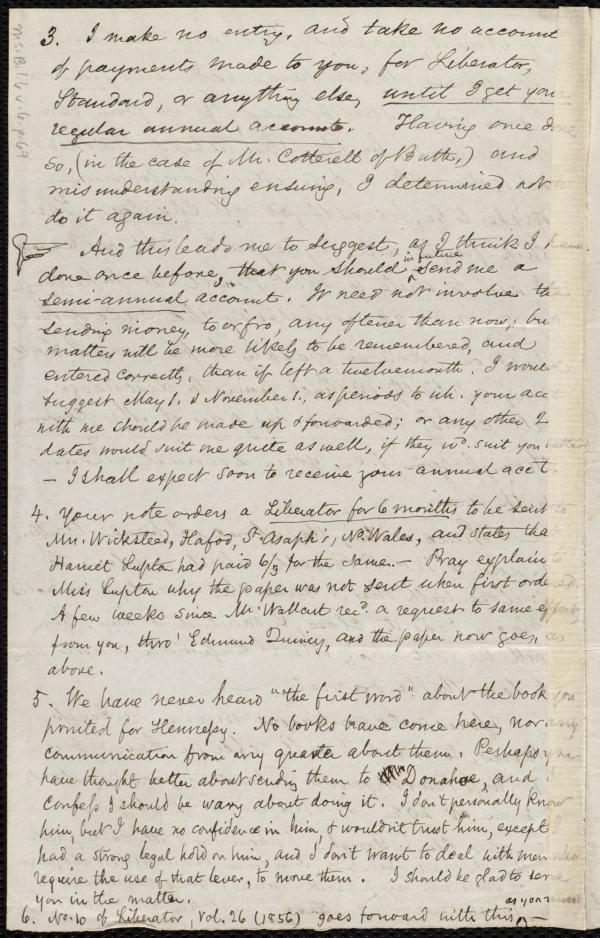 Ms.B.1.6 v.6, p.67
3. I make no entry, and take no account
of payments made to you, for Liberator,
Standard, or anything else, until I get your
regular annual accounts. Having once done
so, (in the case of Mr. Cotterell of Bath,) and
misunderstanding ensuing, I determined not to
do it again.
And this leads me to suggest, as I think I have
done once before, that you should in future send me a
semi-annual account. It need not involve the
sending money, to or fro, any oftener than now; but
matters will be more likely to be remembered, and
entered correctly, than if left a twelvemonth. I would
suggest May 1, & November 1, as periods to wh. your acct
with me should be made up & forwarded; or any other 2
dates would suit me quite as well, if they wd. suit you better
— I shall expect soon to receive your annual acct.
4. Your note orders a Liberator for 6 months to be sent to
Mr. Wicksteed, Hafod, St. Asaph's, No. Wales, and states that
Harriet Lupton had paid 6/3 for the same. — Pray explain to
Miss Lupton why the paper was not sent when first ordered.
A few weeks since Mr. Wallcut recd. a request to same effect,
from you, thro' Edmund Quincy, and the paper now goes, as
above.
5. We have never heard "the first word" about the book you
printed for Hennessy. No books have come here, nor any
communication from any quarter about them. Perhaps you
have thought better about sending them to Donahoe, and I
confess I should be wary about doing it. I don't personally know
him, but I have no confidence in him, & wouldn't trust him, except I
had a strong legal hold on him, and I don't want to deal with men who
require the use of that lever, to move them. I should be glad to serve
you in the matter.
6. No. 10 of Liberator, Vol. 26 (1856) goes forward with this, as you